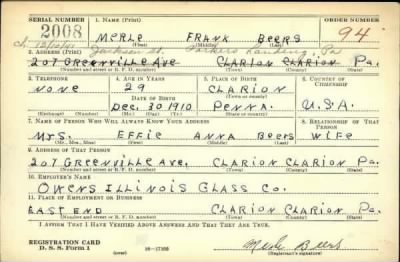 SERIAL NUMBER 1. NAME (Print) ORDER NUMBER
2008 MERLE FRANK BEERS 94
(First) (Middle) (Last)
ch. 12/10/41 Jackson St. Parkers Landing, Pa
2. ADDRESS (Print)
207 GREENVILLE AVE CLARION CLARION Pa.
(Number and street or R. F. D. number) (Town) (County) (State)
3. TELEPHONE 4. AGE IN YEARS 5. PLACE OF BIRTH 6. COUNTRY OF CITIZENSHIP
NONE 29 CLARION
DATE OF BIRTH
DEC. 30 1910 PENNA. U.S.A.
(Mo.) (Day) (Yr.) (State or country)
7. NAME OF PERSON WHO WILL ALWAYS KNOW YOUR ADDRESS 8. RELATIONSHIP OF THAT PERSON
MRS. EFFIE ANNA BEERS WIFE
(Mr., Mrs., Miss) (First) (Middle) (Last)
9. ADDRESS OF THAT PERSON
207 GREENVILLE AVE. CLARION CLARION Pa.
(Number and street or R. F. D. number) (Town) (County) (State)
10. EMPLOYER'S NAME
OWENS ILLINOIS GLASS CO.
11. PLACE OF EMPLOYMENT OR BUSINESS
EAST END CLARION CLARION Pa.
(Number and street or R. F. D. number) (Town) (County) (State)
I AFFIRM THAT I HAVE VERIFIED ABOVE ANSWERS AND THAT THEY ARE TRUE.
REGISTRATION CARD
D. S. S. Form 1 (over) 16-17105 Merle Beers
(Registrant's signature)